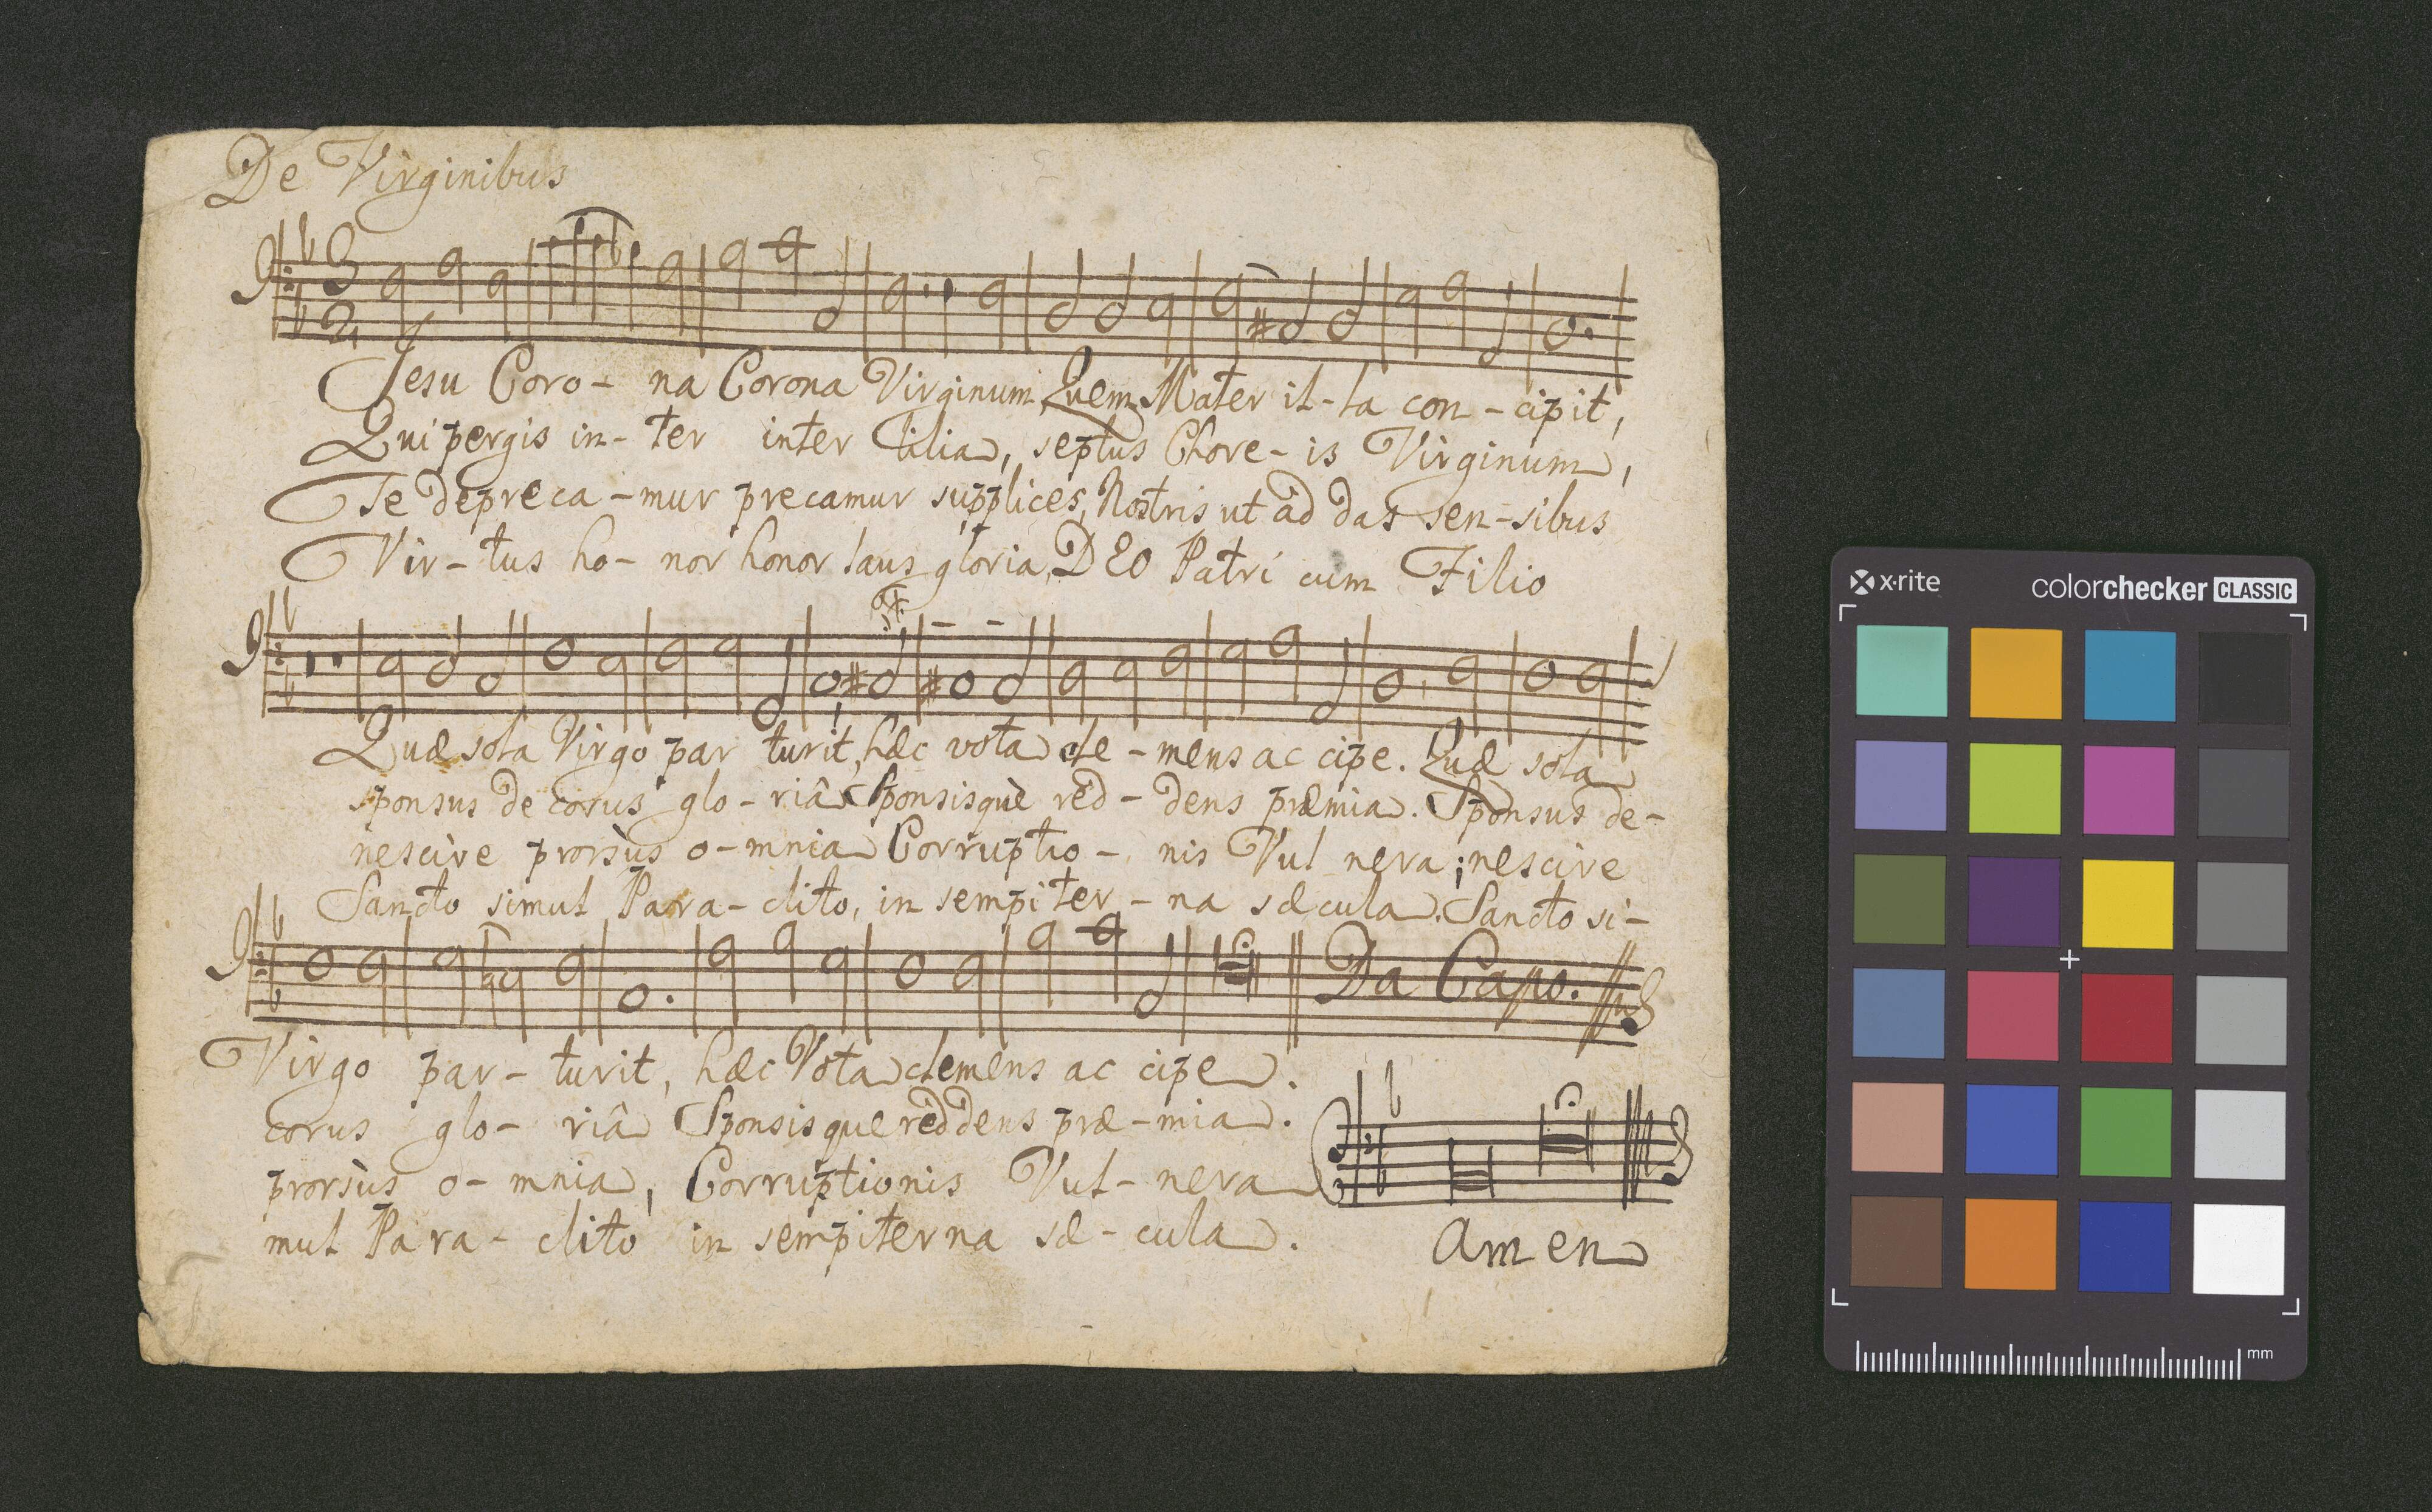 De Virginibus
3
2
Jesu Coro- na Corona Virginum, Quem Mater il-la con-cipit,
Qui pergis in-ter inter lilia, septus Chore-is Virginum,
Te depreca-mur precamur supplices, Nostris ut ad das sen-sibus
Vir-tus ho-nor honor laus gloria, DEO Patri cum Filio
Quæ sola Virgo par turit, hæc vota cle-mens ac cipe. Quæ sola
sponsus decorus glo-riâ Sponsisquè red-dens præmia. Sponsus de-
nescire prorsùs o-mnia Corruptio- nis Vul nera; nescire
Sancto simul Para-clito, in sempiter-na sæcula. Sancto si-
Da Capo.
Virgo par-turit, hæc Vota clemens ac cipe.
corus glo-riâ Sponsisque reddens præ-mia.
prorsùs o-mnia, Corruptionis Vul-nera
mul Para-clito in sempiterna sæ-cula.
Amen
x·rite
colorchecker CLASSIC
mm